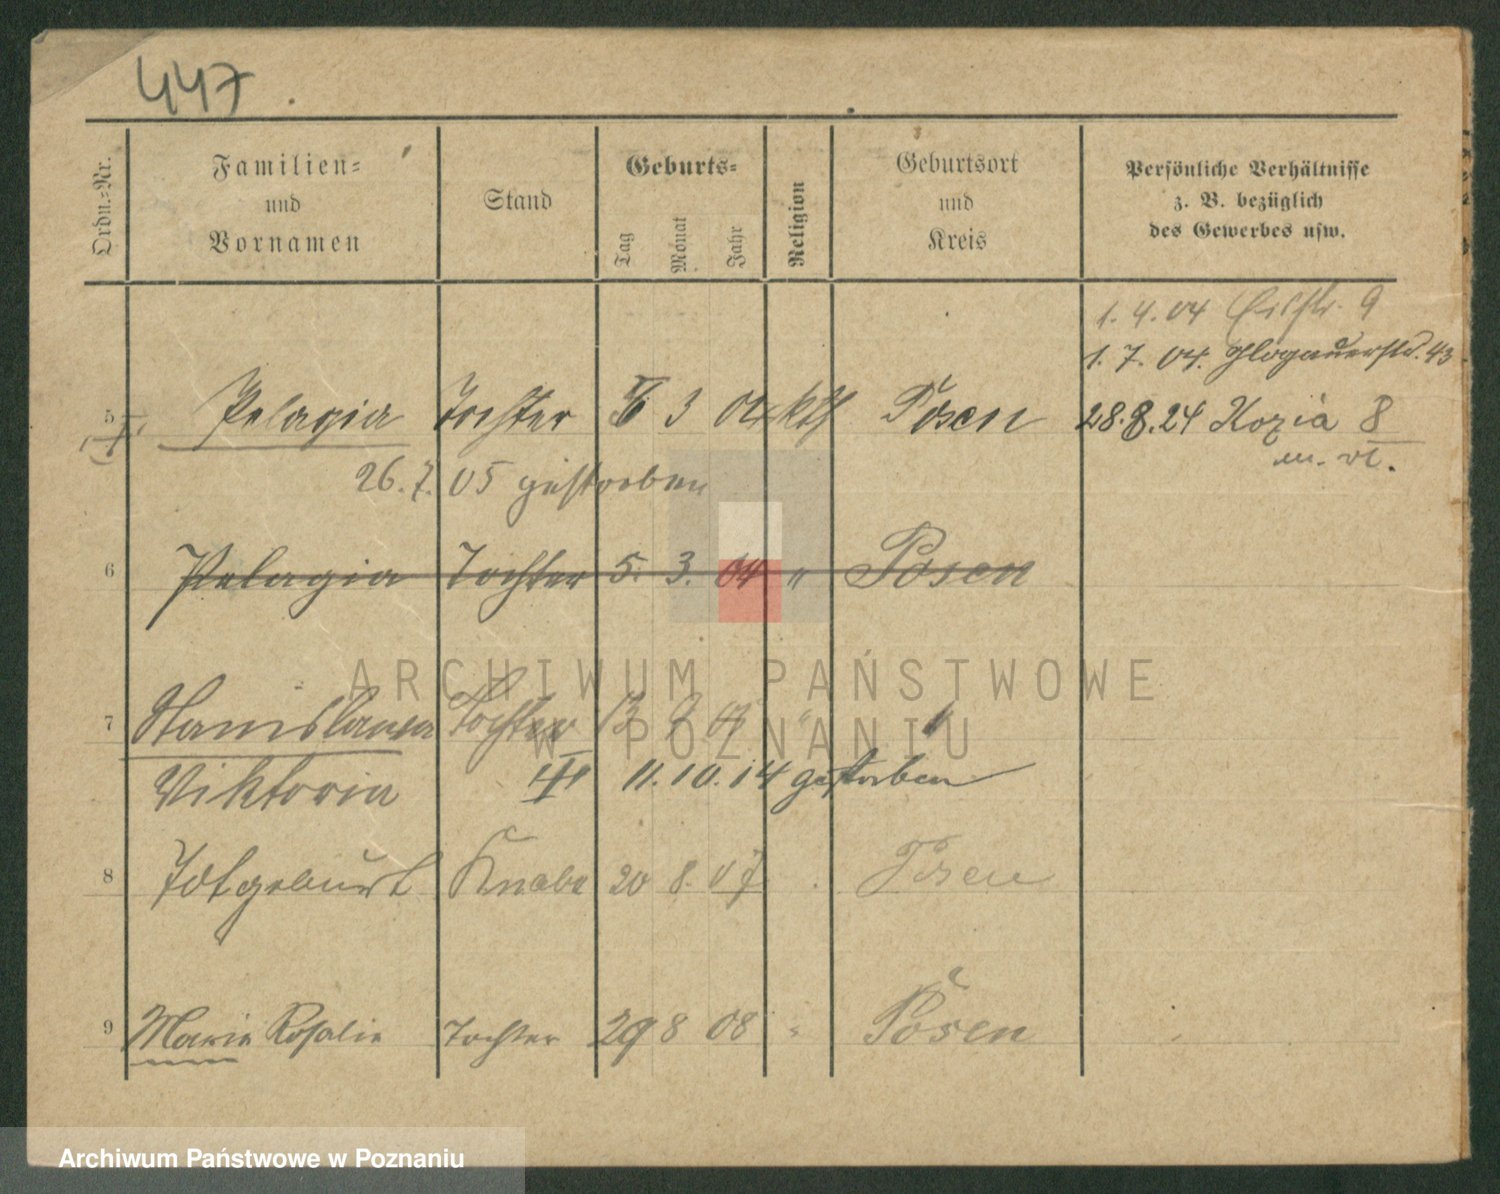 447
Ordn.-Nr.
Familien-
und
Vornamen
Stand
Geburts-
Tag
Monat
Jahr
Religion
Geburtsort
und
Kreis
Persönliche Verhältnisse
z. B. bezüglich
des Gewerbes usw.
1. 4. 04 9
1. 7. 04. Glogauerstr. 43
5 Pelagia Tochter 5 3 04 kth Posen 28.8.24 Kozia 8
m. vt.
26. 7. 05 gestorben
6 Pelagia Tochter 5. 3. 04 " Posen
ARCHIWUM PAŃSTWOWE
W POZNANIU
7 Stanislawa Tochter 13 " "
Viktoria 11. 10. 14 gestorben
8 Totgeburt Knabe 20 8. 07 Posen
9 Marie Rosalie Tochter 29 8 08 " Posen
Archiwum Państwowe w Poznaniu